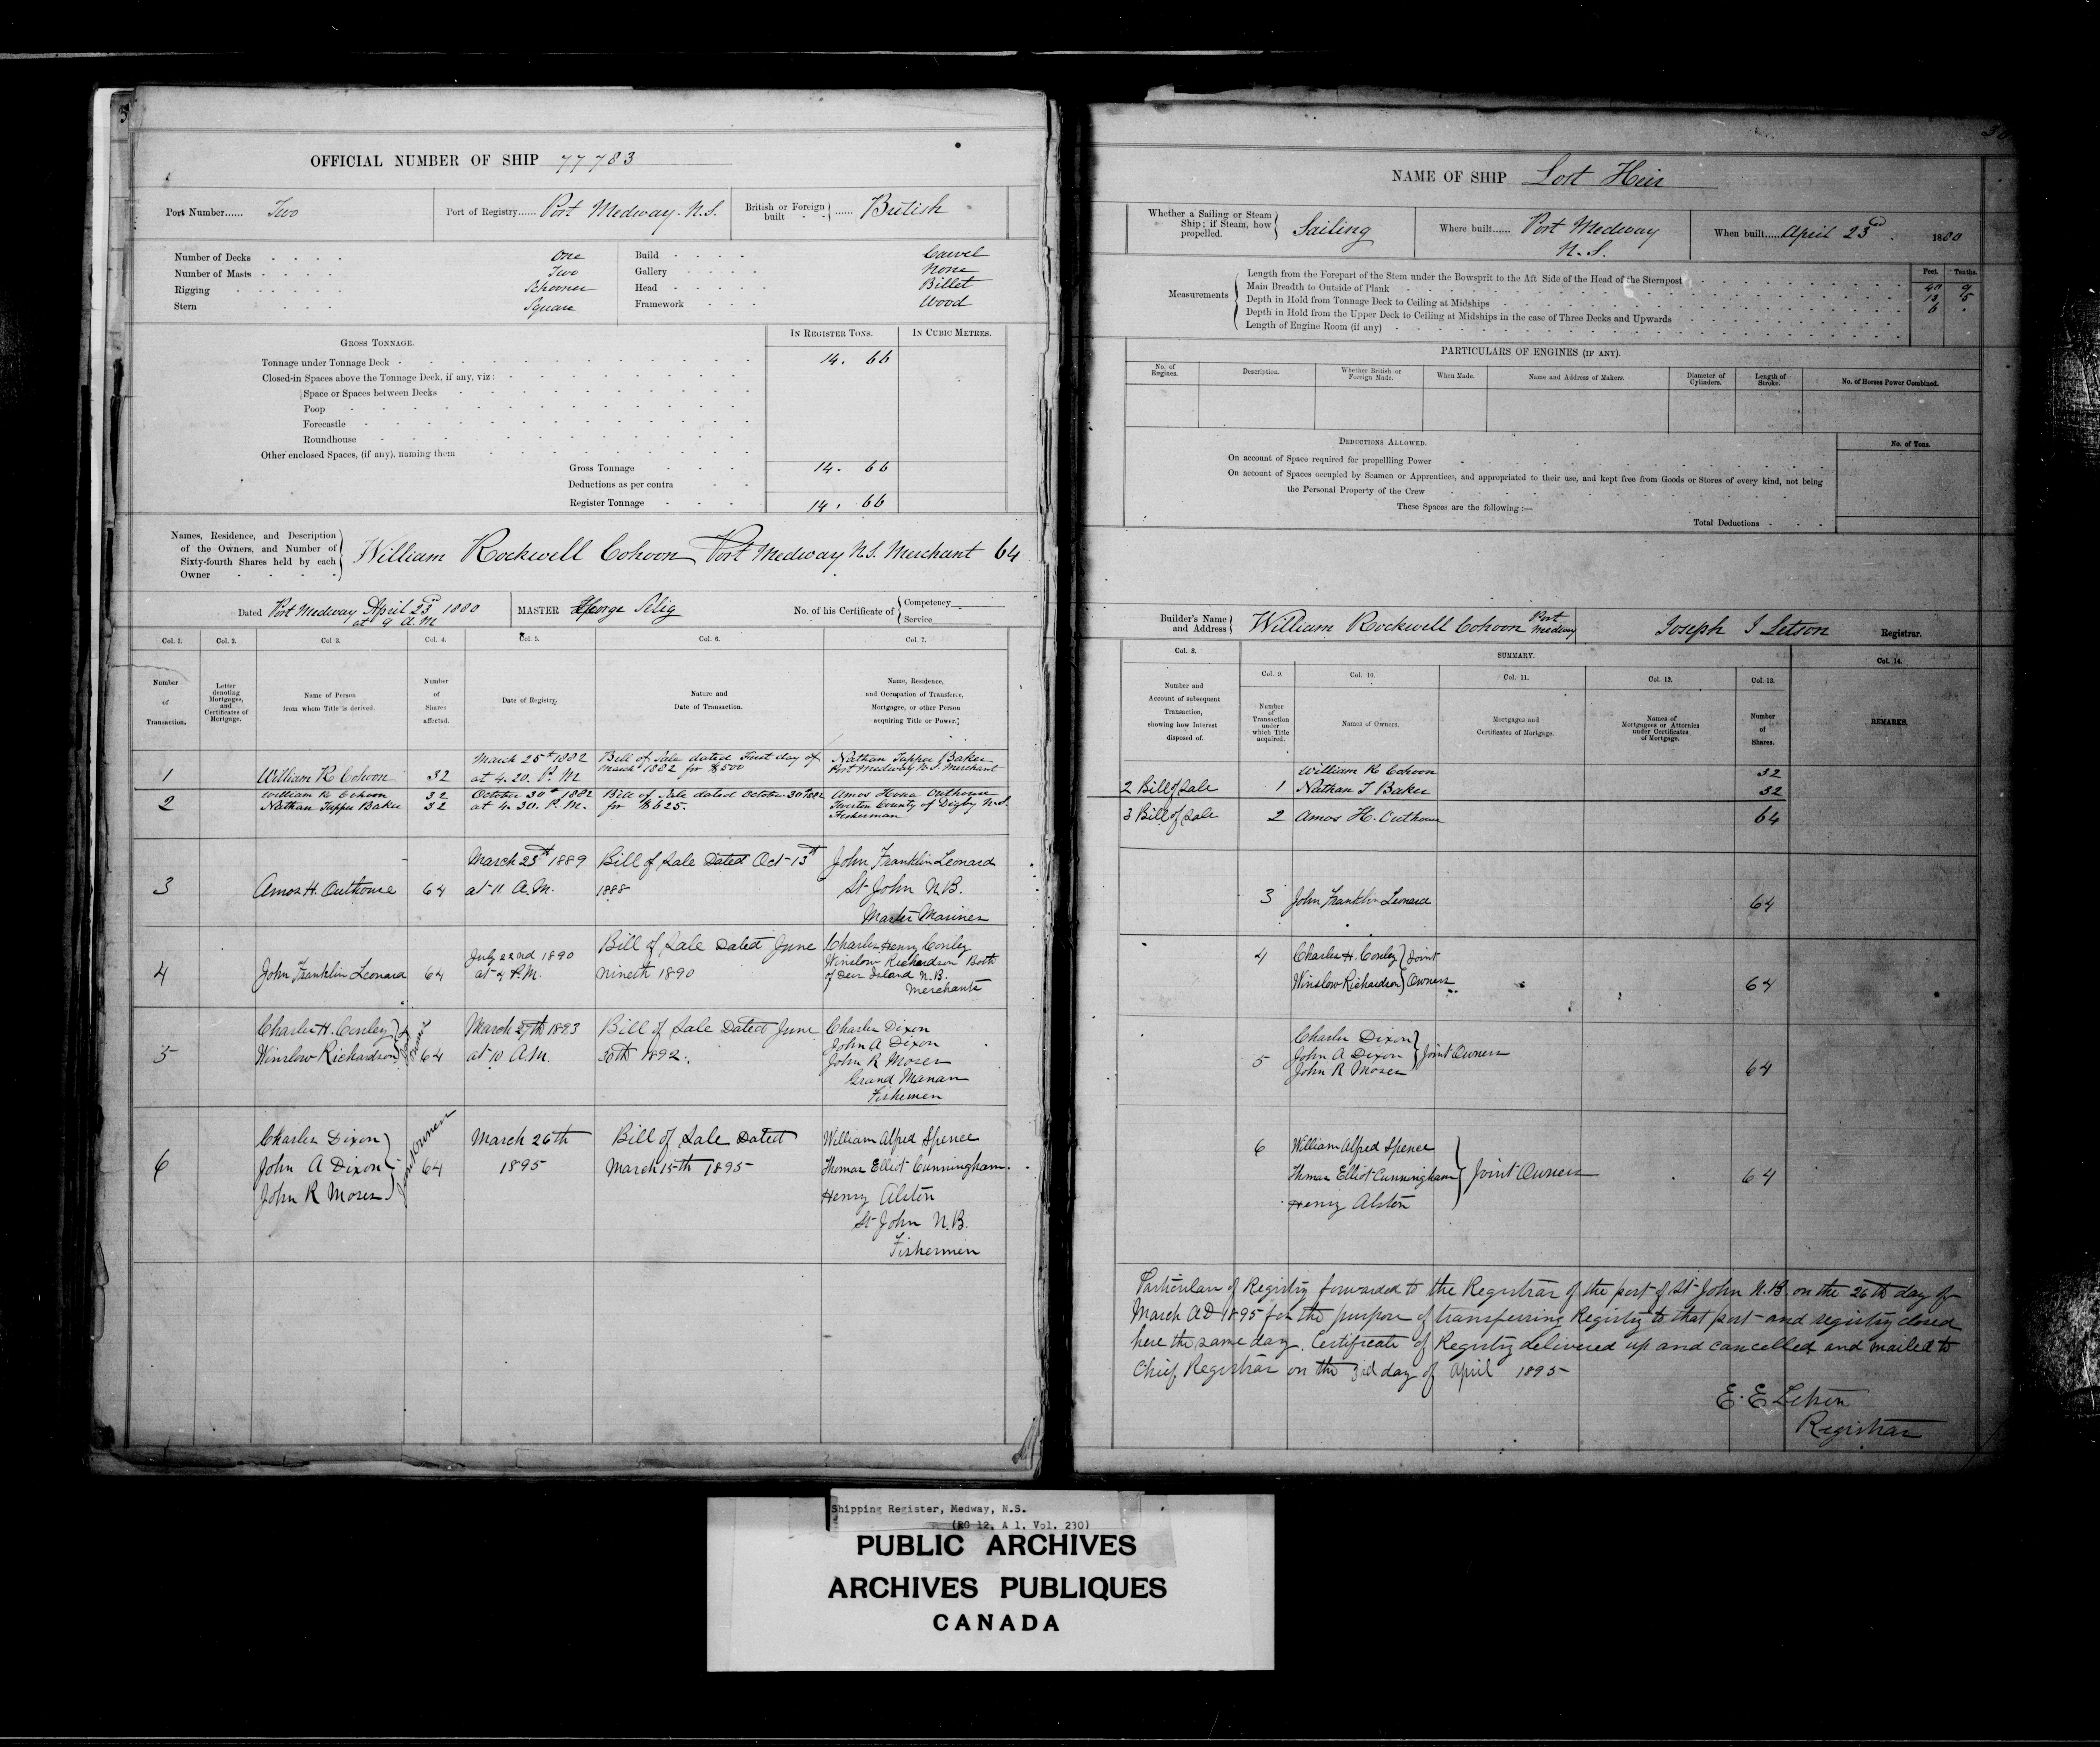 OFFICIAL NUMBER OF SHIP 77783
Port Number...... Two
Port of Registry...... Port Medway. N.S.
British or Foreign built ...... British
Number of Decks One
Number of Masts Two
Rigging Schooner
Stern Square
Build Carvel
Gallery None
Head Billet
Framework Wood
GROSS TONNAGE.
IN REGISTER TONS.
IN CUBIC METRES.
Tonnage under Tonnage Deck 14. 66
Closed-in Spaces above the Tonnage Deck, if any, viz:
Space or Spaces between Decks
Poop
Forecastle
Roundhouse
Other enclosed Spaces, (if any), naming them
Gross Tonnage 14. 66
Deductions as per contra
Register Tonnage 14. 66
Names, Residence, and Description
of the Owners, and Number of
Sixty-fourth Shares held by each
Owner
William Rockwell Cohoon Port Medway N.S. Merchant 64
Dated Port Medway April 23rd 1880
at 9 a.m
MASTER George Selig
No. of his Certificate of
Competency
Service
Col. 1. Col. 2. Col. 3. Col. 4. Col. 5. Col. 6. Col. 7.
Number of Transaction.
Letter denoting Mortgages, and Certificates of Mortgage.
Name of Person from whom Title is derived.
Number of Shares affected.
Date of Registry.
Nature and Date of Transaction.
Name, Residence, and Occupation of Transferee, Mortgagee, or other Person acquiring Title or Power.
1 William R Cohoon 32
March 25th 1882
at 4.20. P. M
Bill of Sale dated First day of
March 1882 for $500
Nathan Tupper Baker
Port Medway N.S. Merchant
2
William R Cohoon 32
Nathan Tupper Baker 32
October 30th 1882
at 4.30. P. M.
Bill of Sale dated October 30th 1882
for $625.
Amos Outhouse
Tiverton County of Digby N.S.
Fisherman
3 Amos H. Outhouse 64
March 23th 1889
at 11 A.M.
Bill of Sale Dated Oct 13th
1888
John Franklin Leonard
St John N.B.
Master Mariner
4 John Franklin Leonard 64
July 22nd 1890
at 4 P.M.
Bill of Sale Dated June
nineth 1890
Charles Henry Conley
Winslow Richardson Both
of Deer Island N.B.
Merchants
5
Charles H. Conley
Winslow Richardson
Joint Owners
64
March 27th 1893
at 10 A.M.
Bill of Sale Dated June
30th 1892.
Charles Dixon
John A Dixon
John R Moses
Grand Manan
Fishermen
6
Charles Dixon
John A Dixon
John R Moses
Joint Owners
64
March 26th
1895
Bill of Sale Dated
March 15th 1895
William Alfred Spence
Thomas Elliot Cunningham
Henry Alston
St John N.B.
Fishermen
NAME OF SHIP Lost Heir
Whether a Sailing or Steam Ship; if Steam, how propelled. Sailing
Where built...... Port Medway
N.S.
When built...... April 23rd. 1880
Measurements
Feet. Tenths.
Length from the Forepart of the Stem under the Bowsprit to the Aft Side of the Head of the Sternpost
Main Breadth to Outside of Plank
Depth in Hold from Tonnage Deck to Ceiling at Midships
Depth in Hold from the Upper Deck to Ceiling at Midships in the case of Three Decks and Upwards
Length of Engine Room (if any)
PARTICULARS OF ENGINES (IF ANY).
No. of Engines.
Description.
Whether British or Foreign Made.
When Made.
Name and Address of Makers.
Diameter of Cylinders.
Length of Stroke.
No. of Horses Power Combined.
DEDUCTIONS ALLOWED.
No. of Tons.
On account of Space required for propellling Power
On account of Spaces occupied by Seamen or Apprentices, and appropriated to their use, and kept free from Goods or Stores of every kind, not being
the Personal Property of the Crew
These Spaces are the following :—
Total Deductions
Builder's Name and Address
William Rockwell Cohoon Port Medway
Joseph I Letson Registrar.
Col. 8.
SUMMARY.
Col. 9. Col. 10. Col. 11. Col. 12. Col. 13. Col. 14.
Number and Account of subsequent Transaction, showing how Interest disposed of.
Number of Transaction under which Title acquired.
Names of Owners.
Mortgages and Certificates of Mortgage.
Names of Mortgagees or Attornies under Certificates of Mortgage.
Number of Shares.
REMARKS.
William R Cohoon 32
2 Bill of Sale 1 Nathan T Baker 32
3 Bill of Sale 2 Amos H. Outhouse 64
3 John Franklin Leonard 64
4 Charles H. Conley Joint
Winslow Richardson Owners 64
5
Charles Dixon
John A Dixon
John R Moses
Joint Owners 64
6 William Alfred Spence
Thomas Elliot Cunningham
Henry Alston
Joint Owners 64
Particulars of Registry forwarded to the Registrar of the port of St John N.B. on the 26th day of
March AD 1895 for the purpose of transferring Registry to that port and registry closed
here the same day. Certificate of Registry delivered up and cancelled and mailed to
Chief Registrar on the 3rd day of April 1895
E. E Letson
Registrar
Shipping Register, Medway, N.S.
(RG 12, A 1, Vol. 230)
PUBLIC ARCHIVES
ARCHIVES PUBLIQUES
CANADA